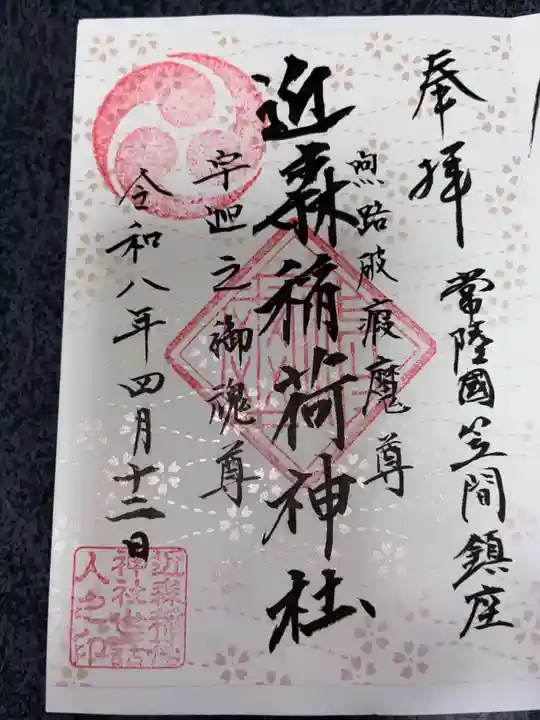 奉拝
常陸國笠間鎮座
煕路破瘕魔尊
近森稲荷神社
宇迦之御魂尊
令和八年四月十二日
近森神社
神社世話
人之印